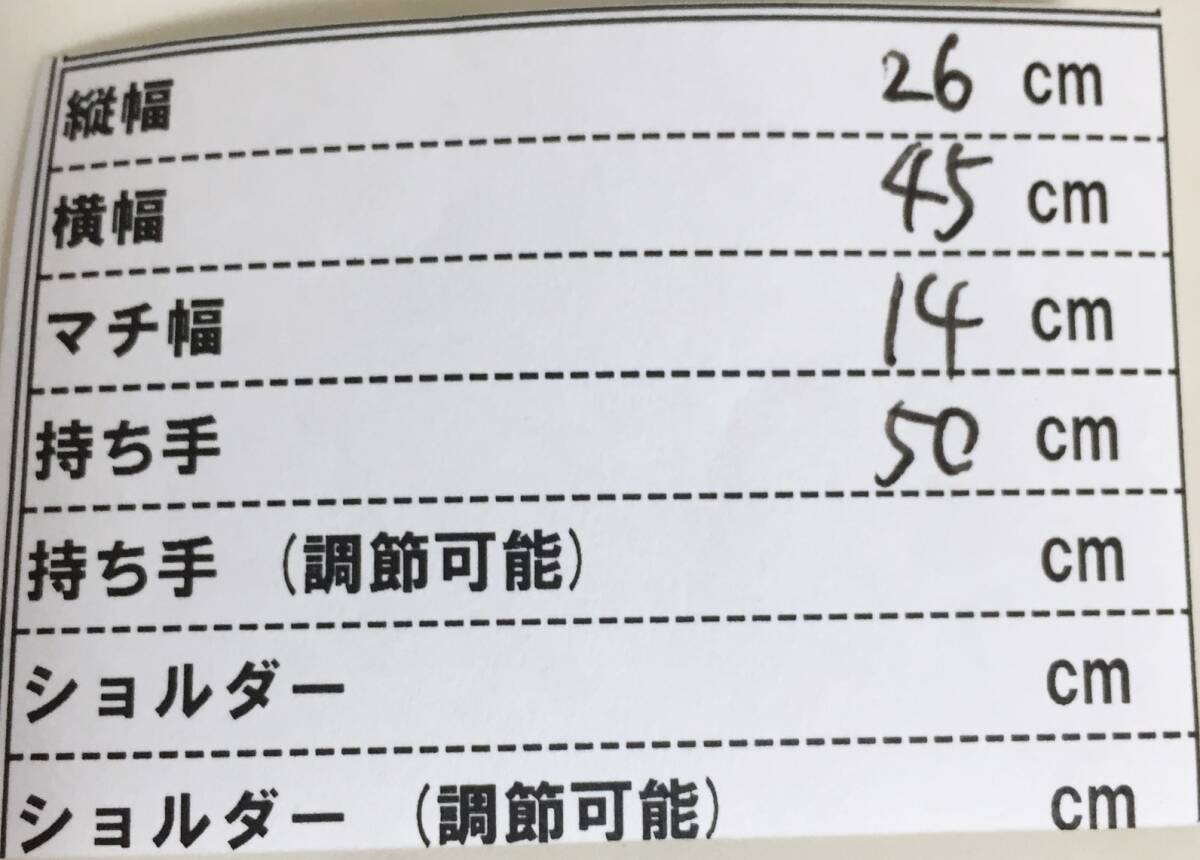 縦幅 26 cm
横幅 45 cm
マチ幅 14 cm
持ち手 50 cm
持ち手 (調節可能) cm
ショルダー cm
ショルダー (調節可能) cm